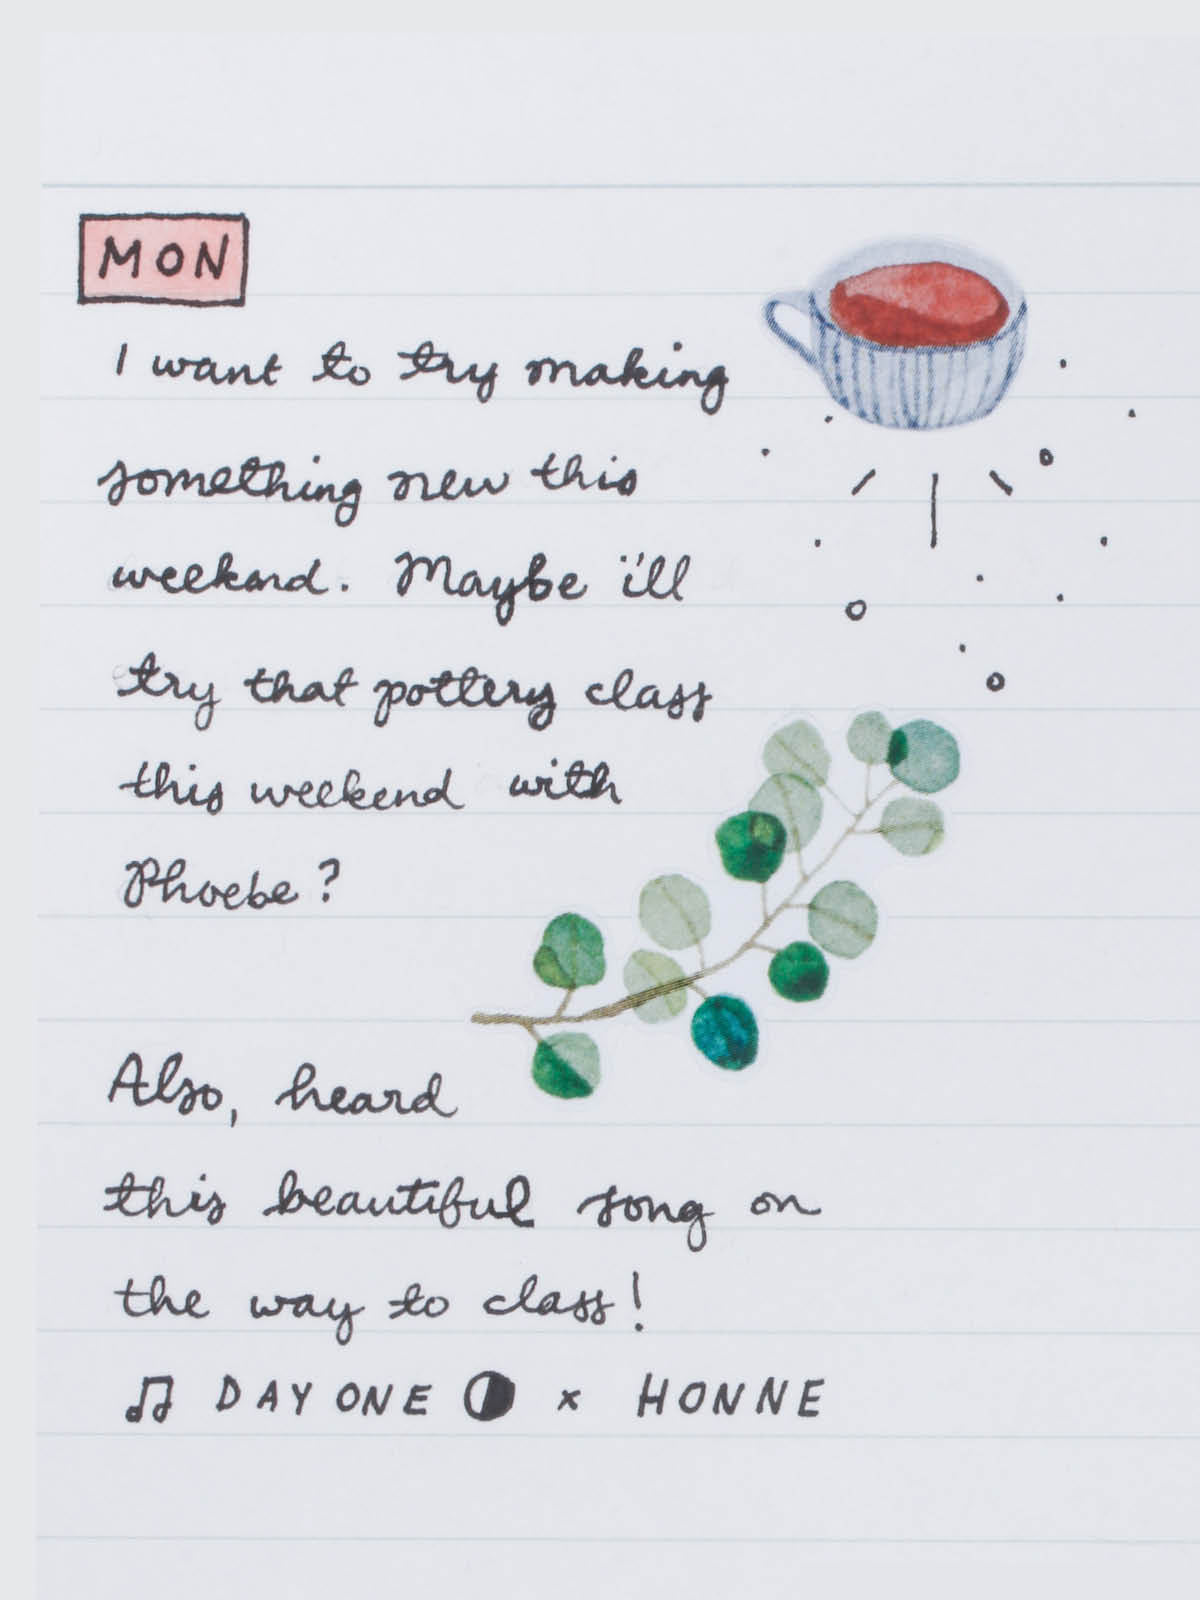 MON
I want to try making
something new this
weekend. Maybe i'll
try that pottery class
this weekend with
Phoebe?
Also, heard
this beautiful song on
the way to class!
♫ DAY ONE ◑ x HONNE